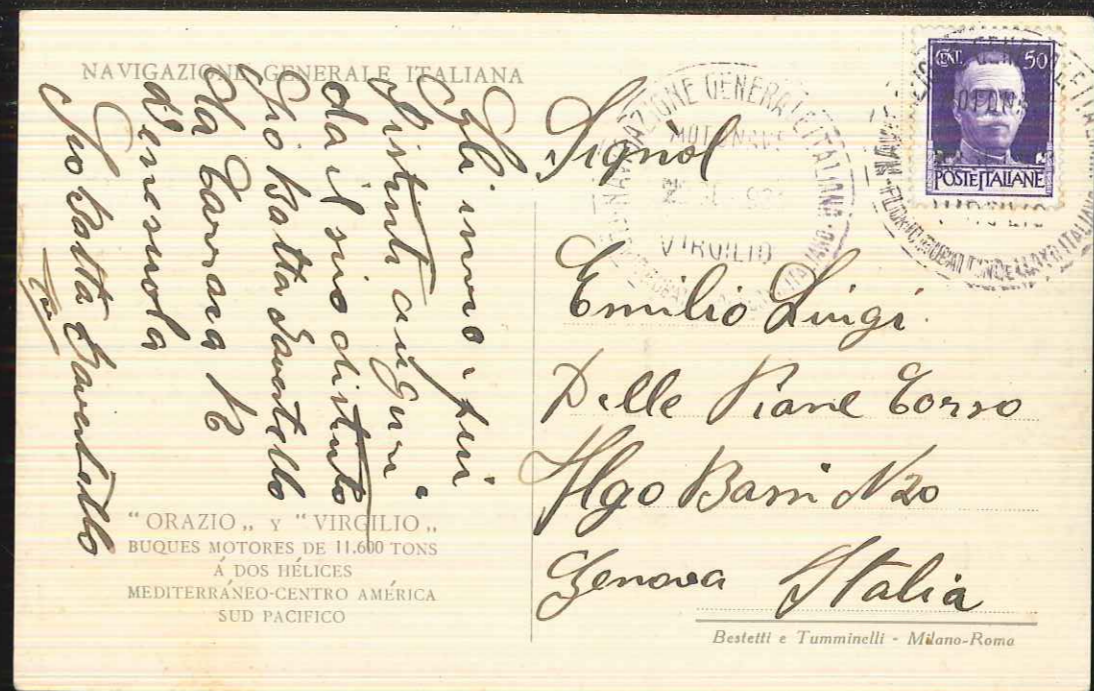 NAVIGAZIONE GENERALE ITALIANA
Gli invio i piu
distinti auguri
da il suo distinto
Gio Batta Savertello
La Carrara
Venesuola
Gio Batta Savertello
"ORAZIO„ Y "VIRGILIO„
BUQUES MOTORES DE 11.600 TONS
Á DOS HÉLICES
MEDITERRÁNEO-CENTRO AMÉRICA
SUD PACIFICO
NAVIGAZIONE GENERALE ITALIANA
MOTONAVE
VIRGILIO
CENT. 50
POSTE ITALIANE
Signol
Emilio Luigi
Delle Piane Corso
Ugo Bassi N 20
Genova Italia
Bestetti e Tumminelli - Milano-Roma